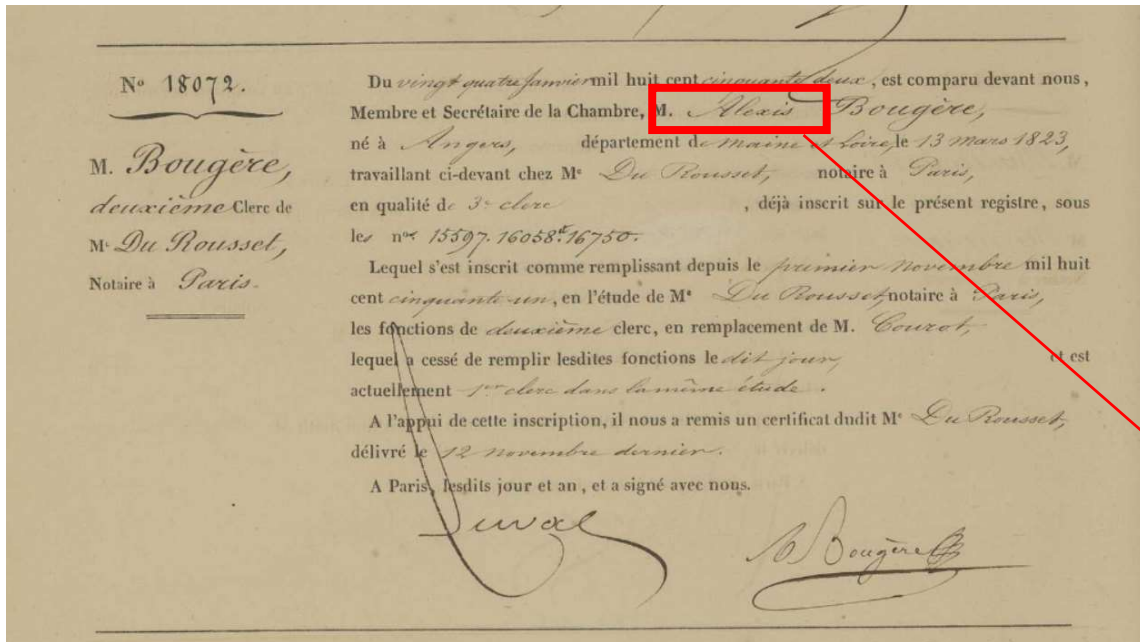 Nº 18072.
M. Bougère,
deuxième Clerc de
Mᵉ Du Rousset,
Notaire à Paris.
Du vingt quatre Janvier mil huit cent cinquante deux, est comparu devant nous,
Membre et Secrétaire de la Chambre, M. Alexis Bougère,
né à Angers, département de maine et Loire, le 13 mars 1823,
travaillant ci-devant chez Mᵉ Du Rousset, notaire à Paris,
en qualité de 3ᵉ clerc , déjà inscrit sur le présent registre, sous
les nᵒˢ 15597. 16058. et 16750.
Lequel s'est inscrit comme remplissant depuis le premier novembre mil huit
cent cinquante-un, en l'étude de Mᵉ Du Rousset, notaire à Paris,
les fonctions de deuxième clerc, en remplacement de M. Courot,
lequel a cessé de remplir lesdites fonctions le dit jour, et est
actuellement 1ᵉʳ clerc dans la même étude.
A l'appui de cette inscription, il nous a remis un certificat dudit Mᵉ Du Rousset,
délivré le 12 novembre dernier.
A Paris, lesdits jour et an, et a signé avec nous.
Duval
A Bougère